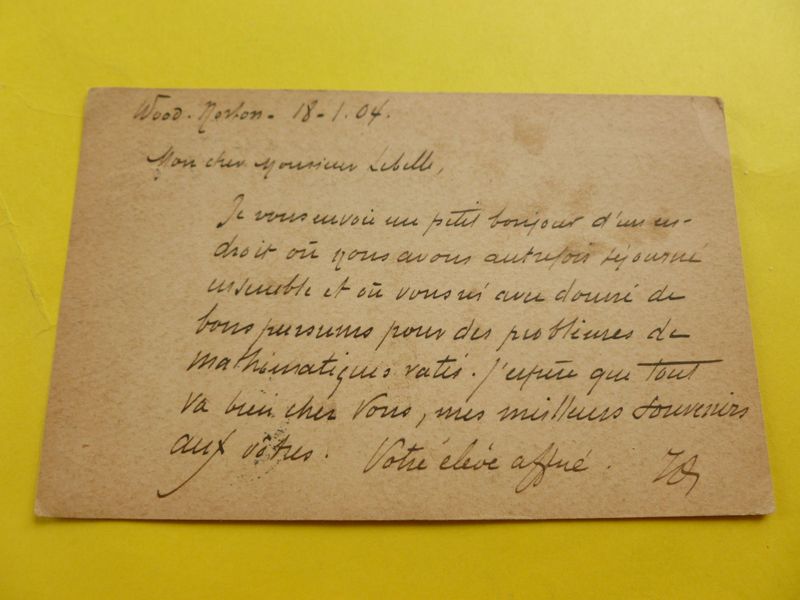 Wood-Norton - 18-1.04.
Mon cher Monsieur Lebelle,
Je vous envoie un petit bonjour d'un en-
droit où nous avons autrefois séjourné
ensemble et où vous m'avez donné de
bons pensums pour des problèmes de
mathématiques ratés. J'espère que tout
va bien chez Vous, mes meilleurs souvenirs
aux vôtres. Votre élève affné.